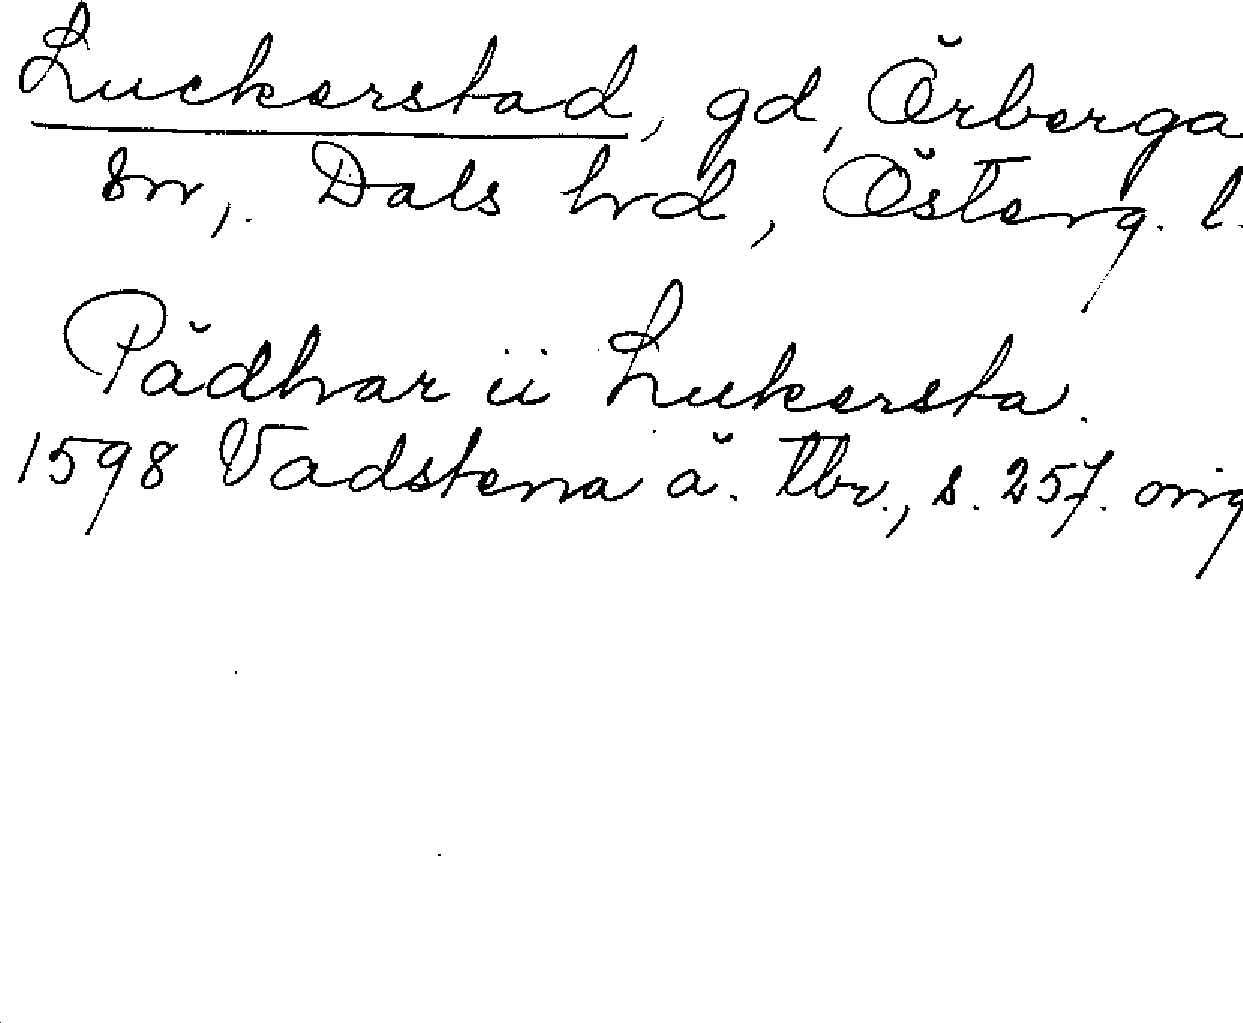 Luckerstad, gd, Örberga
sn, Dals hrd, Österg. l.
Pädhar ii Lukersta.
1598 Vadstena ä. tbr., s. 257. orig